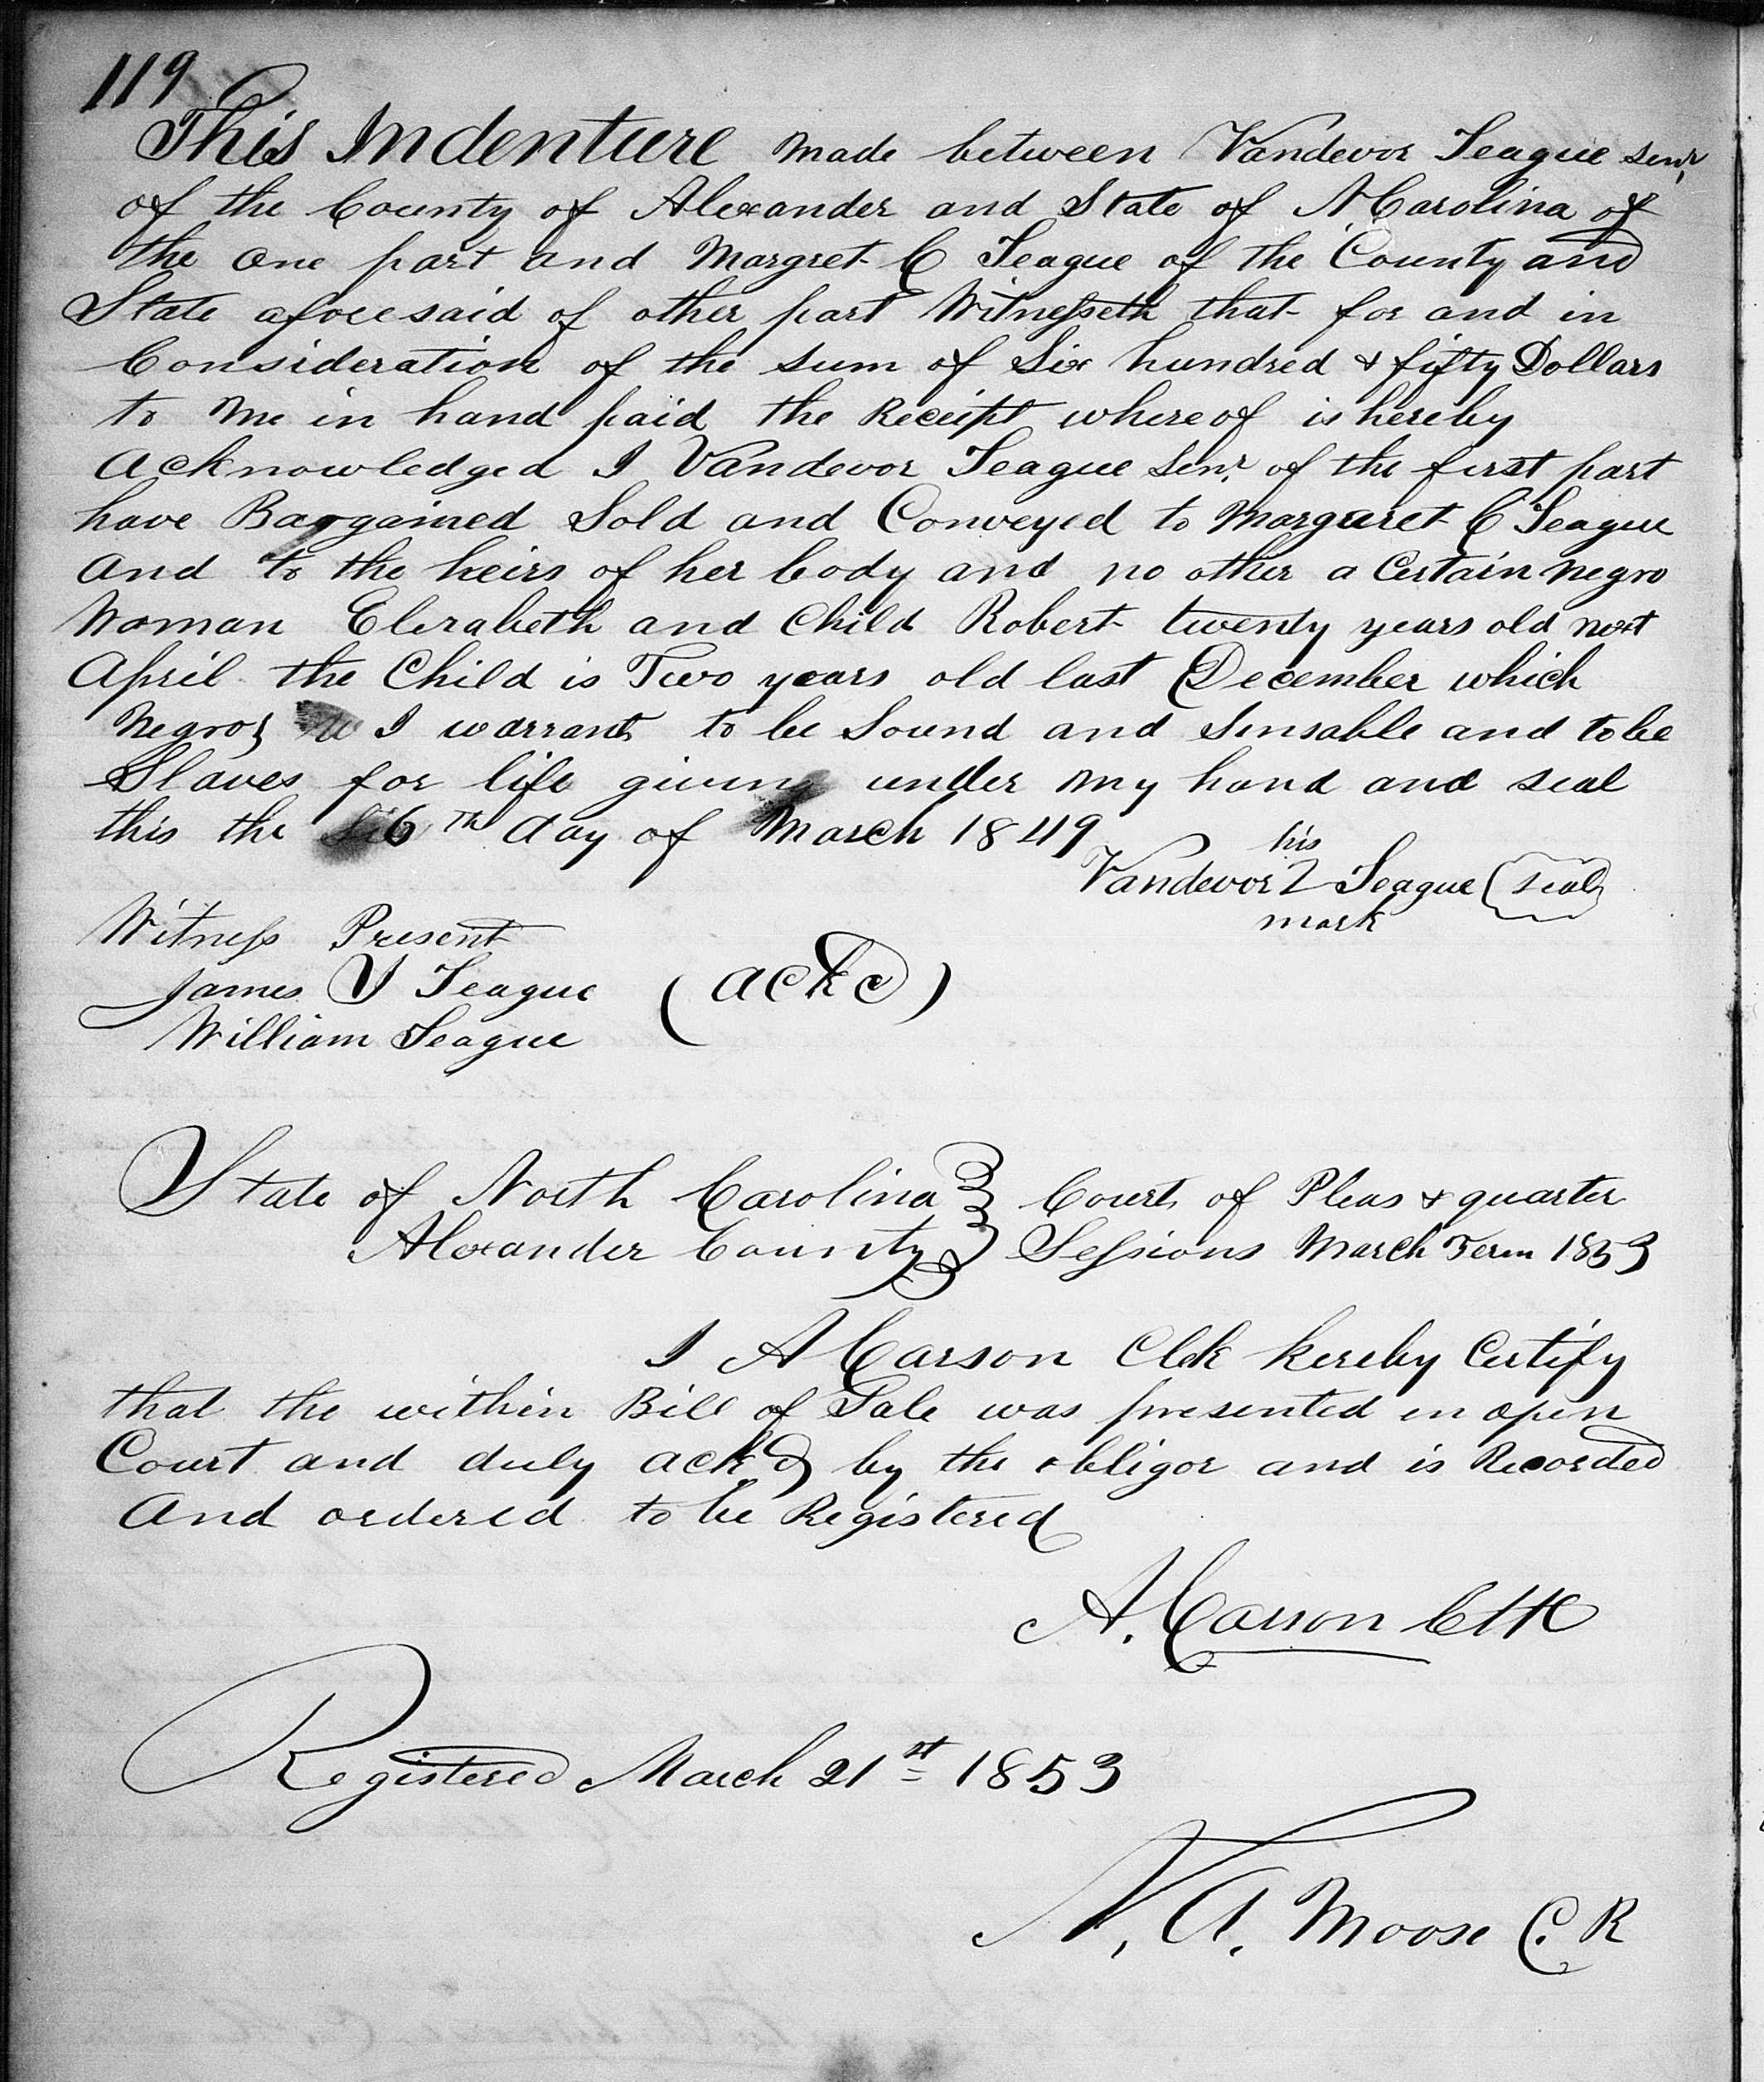 119
This Indenture made between Vandevor Teague Senr.
of the County of Alexander and State of N Carolina of
the one part and Margret C Teague of the County and
State aforesaid of other part Witnesseth that for and in
Consideration of the sum of Six hundred & fifty Dollars
to me in hand paid the Receipt whereof is hereby
acknowledged I Vandevor Teague Senr. of the first part
have Bargained Sold and Conveyed to Margaret C Teague
and to the heirs of her body and no other a Certain negro
Woman Elizabeth and Child Robert twenty years old next
April the Child is Two years old last December which
Negros I warrant to be Sound and Sensable and to be
Slaves for life given under my hand and seal
this the 6th day of March 1849
his
Vandevor 2 Teague (seal)
mark
Witness Present
James J Teague (ackd)
William Teague
State of North Carolina } Court of Pleas & quarter
Alexander County } Sessions March Term 1853
I A Carson Clk hereby Certify
that the within Bill of Sale was presented in open
Court and duly ackd by the obligor and is Recorded
and ordered to be Registered
A. Carson Clk
Registered March 21st 1853
N. A. Moose C. R